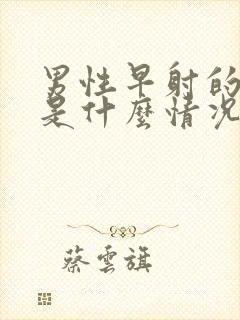 男性早射的
是什麼情况
蔡雲旗